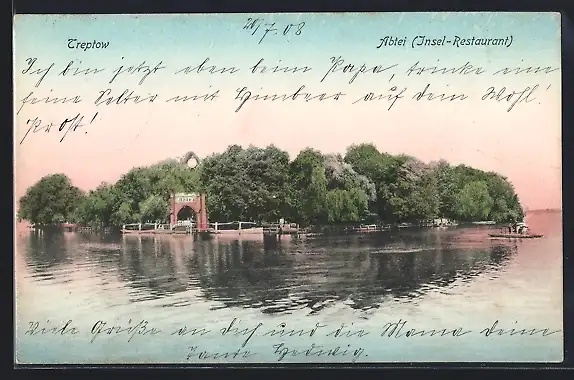 20/7 08
Treptow
Abtei (Insel-Restaurant)
Ich bin jetzt eben beim Papa, trinke eine
feine Selter mit Himbeer auf dein Wohl!
Prost!
Viele Grüße an dich und die Mama deine
Tante Hedwig.